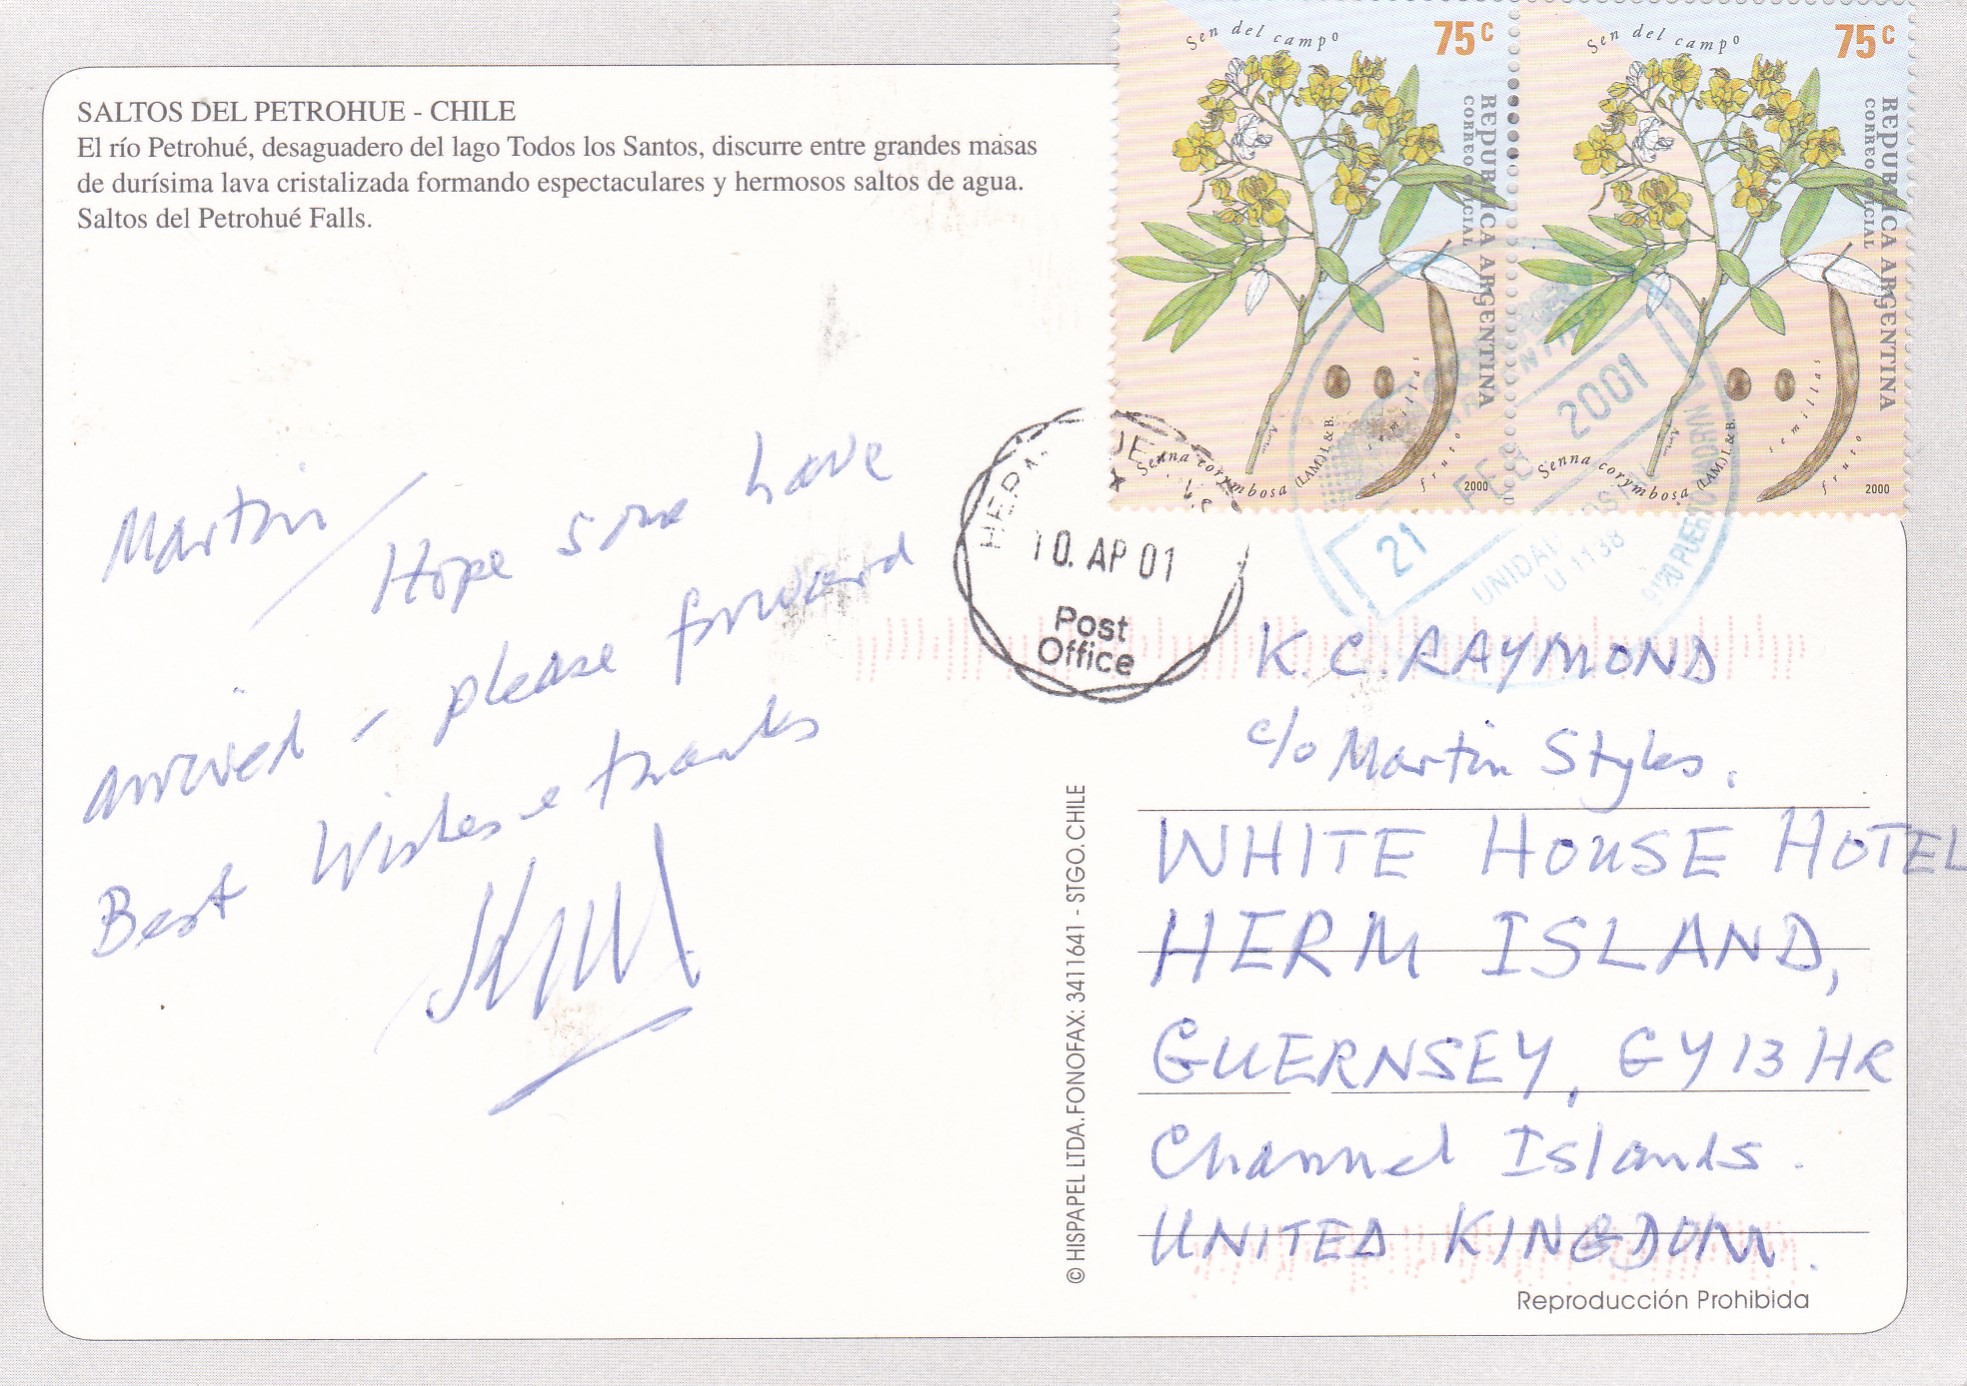 SALTOS DEL PETROHUE - CHILE
El río Petrohué, desaguadero del lago Todos los Santos, discurre entre grandes masas
de durísima lava cristalizada formando espectaculares y hermosos saltos de agua.
Saltos del Petrohué Falls.
Sen del campo
75c
REPUBLICA ARGENTINA
CORREO OFICIAL
semillas
fruto
Senna corymbosa (LAM.) I. & B.
2000
Sen del campo
75c
REPUBLICA ARGENTINA
CORREO OFICIAL
semillas
fruto
Senna corymbosa (LAM.) I. & B.
2000
21 2001
U 1138
10. AP 01
Post
Office
Martin/
Hope some have
arrived - please forward
Best Wishes & thanks
K. C. RAYMOND
c/o Martin Styles.
WHITE HOUSE HOTEL
HERM ISLAND,
GUERNSEY, GY13HR
Channel Islands.
UNITED KINGDOM.
© HISPAPEL LTDA. FONOFAX: 3411641 - STGO. CHILE
Reproducción Prohibida